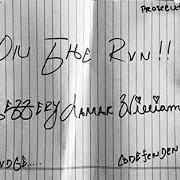 PROSECUT
ON THE RUN!!
EZZERY LAMAR Williams
UDGE....
CODEFENDEN